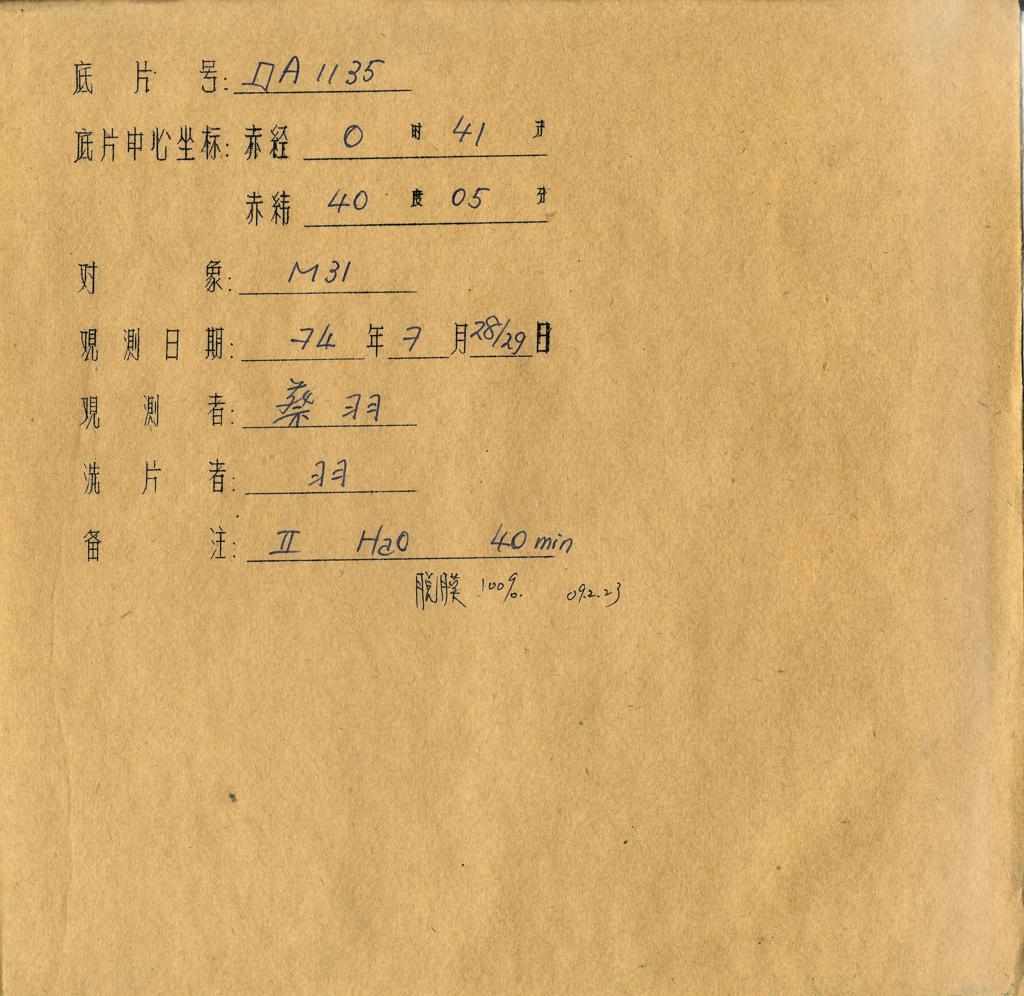 底片号: ДA 1135
底片中心坐标: 赤经 0 时 41 分
赤纬 40 度 05 分
对象: M31
观测日期: 74 年 7 月 28/29 日
观测者: 蔡 羽
洗片者: 羽
备注: II HaO 40 min
脱膜 100%. 09.2.23